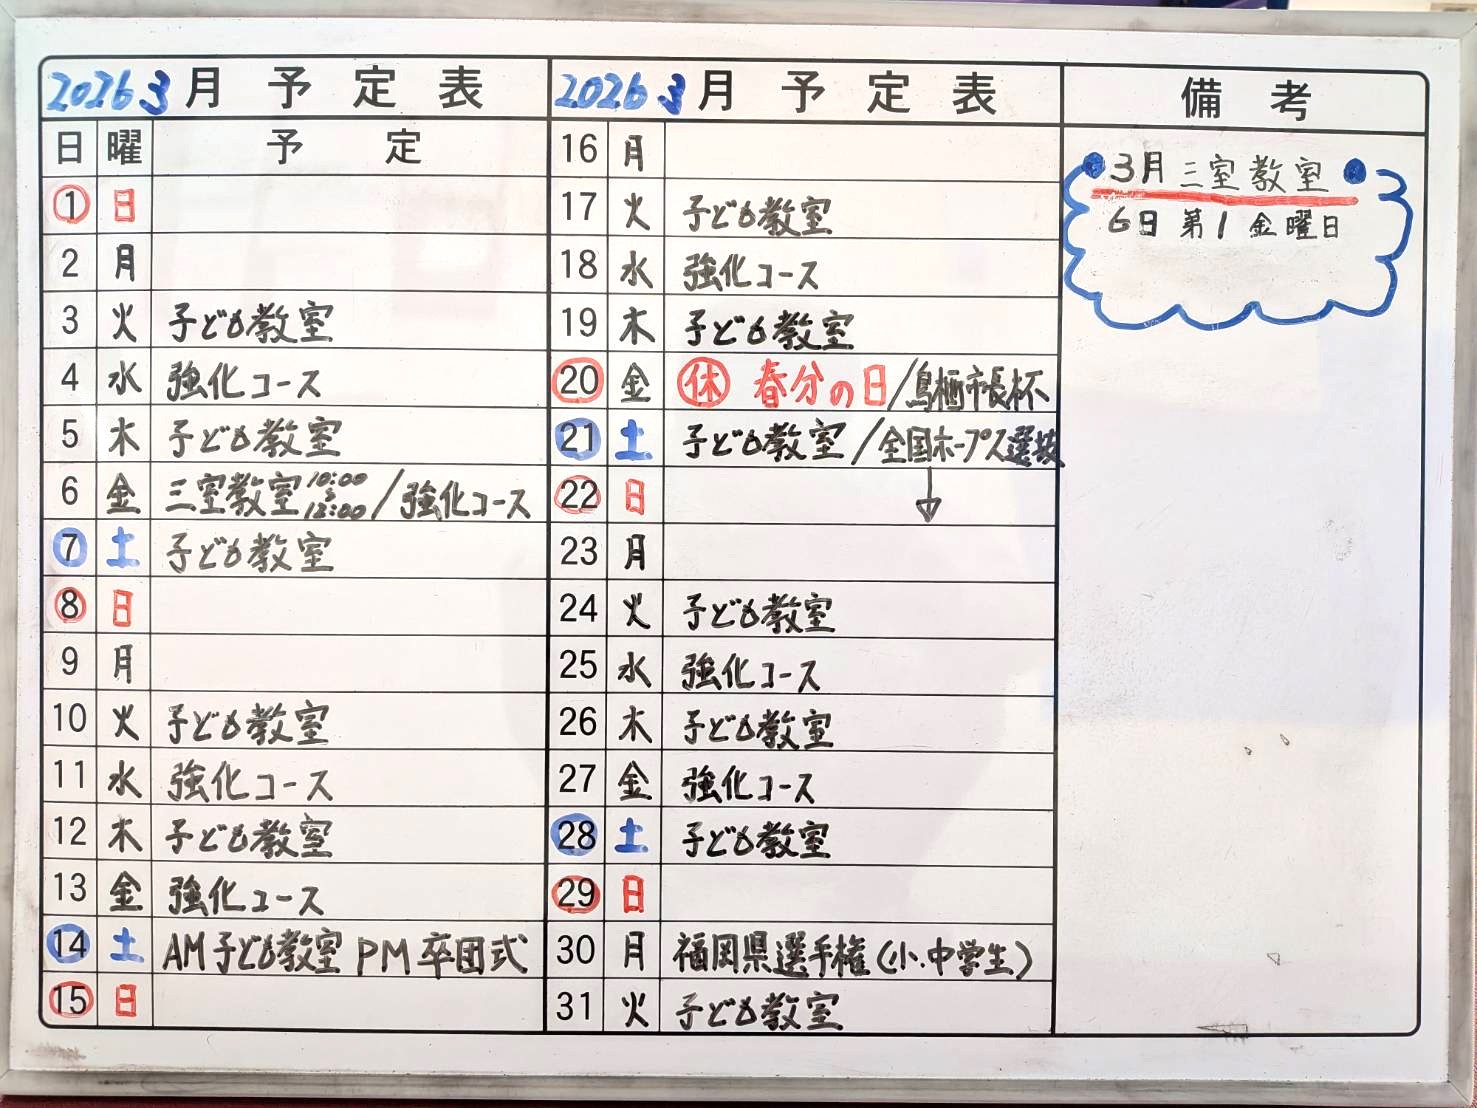 2026 3月 予定表
日 曜 予定
1 日
2 月
3 火 子ども教室
4 水 強化コース
5 木 子ども教室
6 金 三室教室 10:00〜12:00/強化コース
7 土 子ども教室
8 日
9 月
10 火 子ども教室
11 水 強化コース
12 木 子ども教室
13 金 強化コース
14 土 AM 子ども教室 PM 卒団式
15 日
2026 3月 予定表
16 月
17 火 子ども教室
18 水 強化コース
19 木 子ども教室
20 金 休 春分の日/鳥栖市長杯
21 土 子ども教室/全国ホープス選抜
22 日 ↓
23 月
24 火 子ども教室
25 水 強化コース
26 木 子ども教室
27 金 強化コース
28 土 子ども教室
29 日
30 月 福岡県選手権(小.中学生)
31 火 子ども教室
備考
3月 三室教室
6日 第1 金曜日